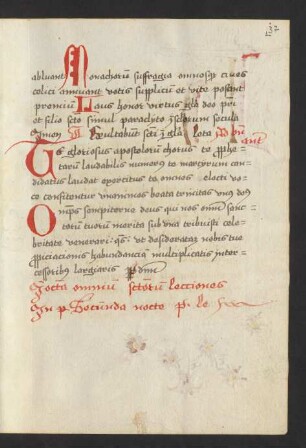 abluant Monachorū suffragia omnesq; ciues
celici annuant votis supplicū et vite poscant
premiū Laus honor virtus gl̄a deo pri
et filio scto simul paraclyto in seculorum secula
Amen Exultabunt scti in gl̄a
Te gloriosus apostolorū chorus te prophe-
tarū laudabilis numerus te martyrum can-
didatus laudat exercitus te omnes electi voce
confitentur vnanimes beata trinitas vnus deus
Omps sempiterne deus qui nos omniū sanc-
torū tuorū merita sub vna tribuisti cele-
britate venerari qs vt desideratā nobis tue
ppiciacionis habundanciā multiplicatis inter-
cessoribus largiaris P dnm
octa omniū sctorū lecciones
In p Secunda nocte